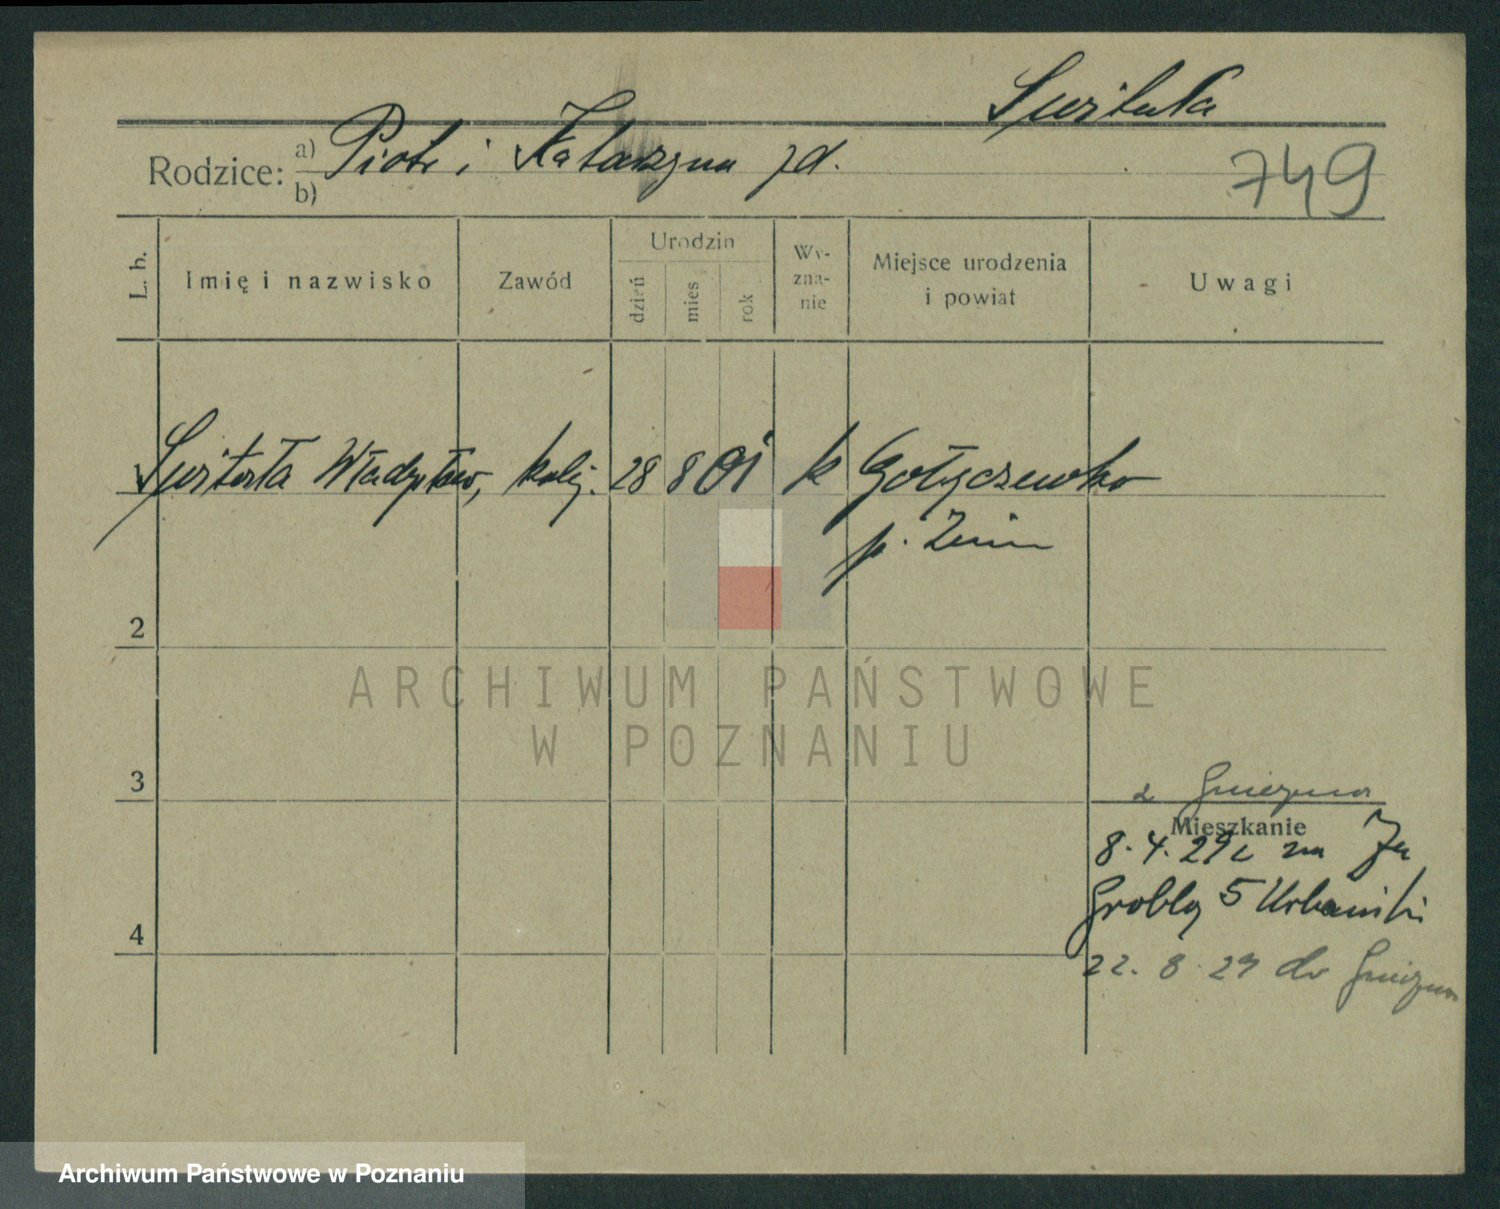 Switała
Rodzice: a) Piotr i Katarzyna zd.
b)
749
L. b.
Imię i nazwisko
Zawód
Urodzin
dzień
mies
rok
Wy-
zna-
nie
Miejsce urodzenia
i powiat
Uwagi
Switała Władysław, kolej. 28 8 01 k Gołyczewko
p. Żnin
2
3
4
z Gniezna
Mieszkanie
8. 4. 29 na Za
Groblą 5 Urbański
22. 8 29 do Gniezna
ARCHIWUM PAŃSTWOWE
W POZNANIU
Archiwum Państwowe w Poznaniu